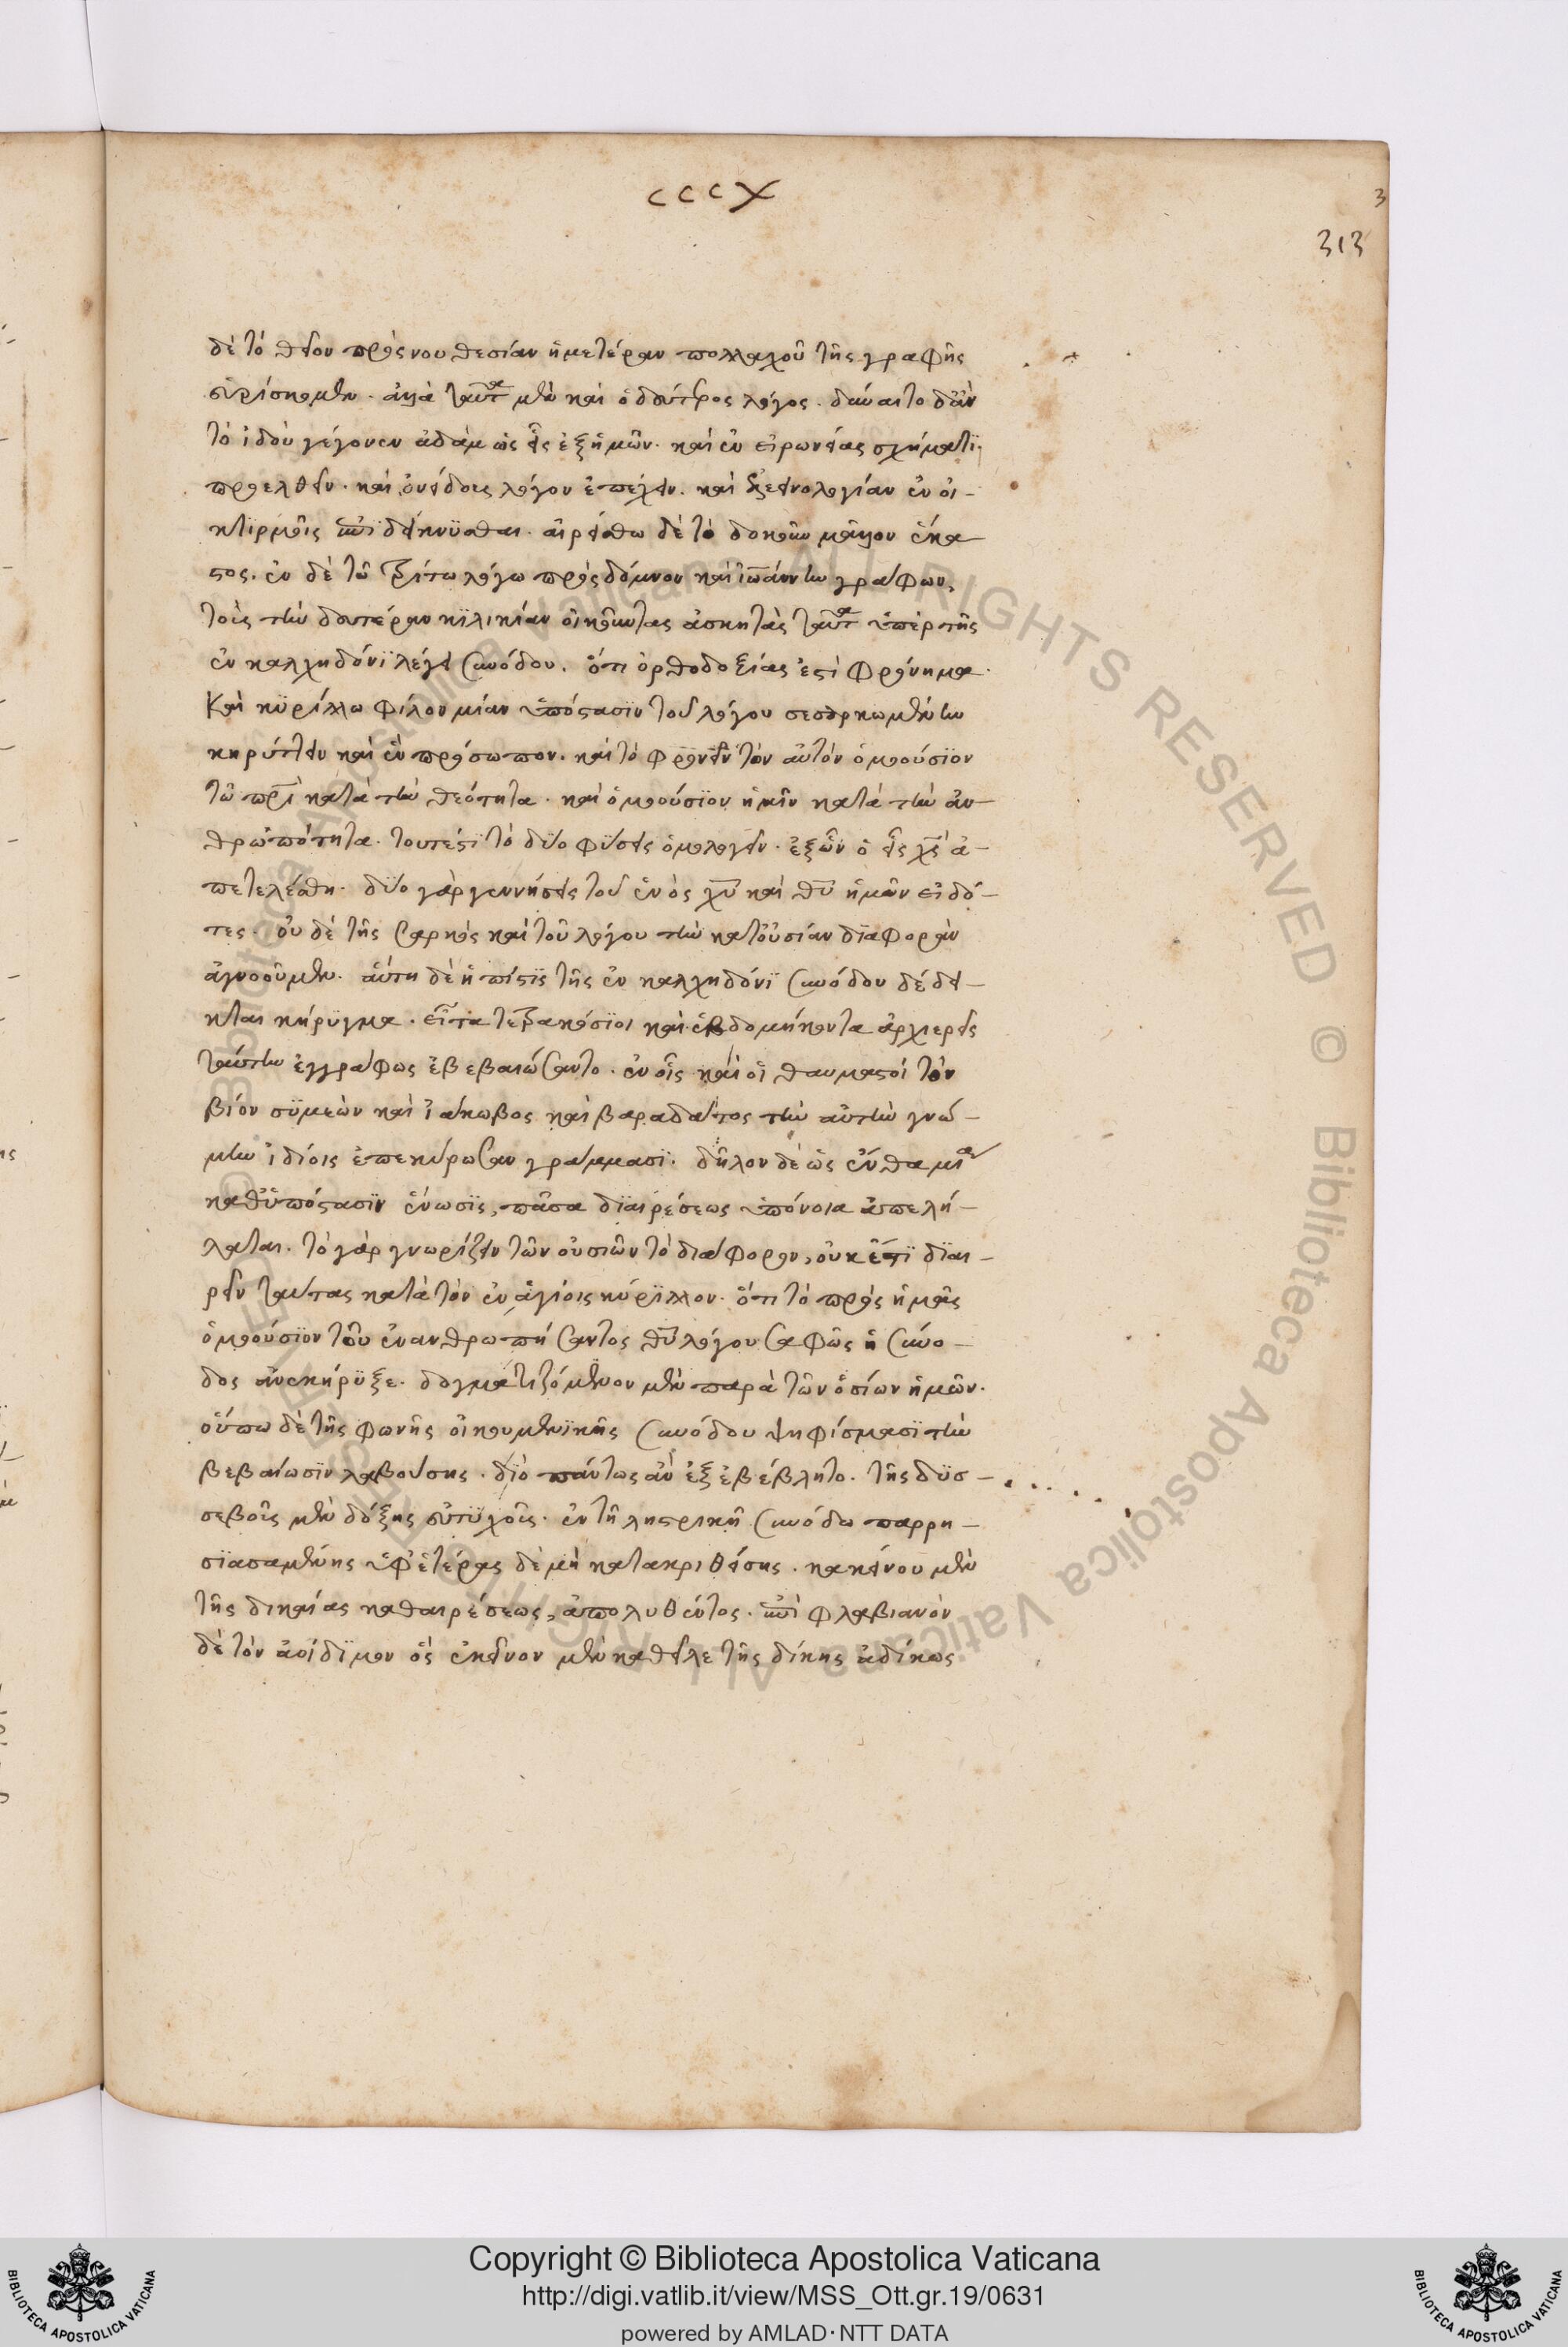 cccx
3
313
δὲ τὸ θεῖον πρὸς νουθεσίαν ἡμετέραν πολλαχοῦ τῆς γραφῆς
εὑρίσκομεν. ἀλλὰ ταῦτα μὲν καὶ ὁ δεύτερος λόγος. δύναιτο δ' ἂν
τὸ ἰδοὺ γέγονεν ἀδὰμ ὡς εἷς ἐξ ἡμῶν. καὶ ἐν εἰρωνείας σχήματι
προελθεῖν. καὶ ὀνείδους λόγον ἐπέχειν. καὶ ἐν οἰ-
κτιρμοῖς ἐπιδείκνυσθαι. αἱρείσθω δὲ τὸ δοκοῦν μᾶλλον ἕκα-
στος. ἐν δὲ τῶ τρίτω λόγω πρὸς δόμνον καὶ ἰωάννην γράφων,
τοὺς τὴν δευτέραν κϊλικίαν οἰκοῦντας ἀσκητὰς ταῦτα ὑπὲρ τῆς
ἐν καλχηδόνϊ λέγει συνόδου. ὅτι ὀρθοδοξίας ἐστὶ φρόνημα.
Καὶ κϋρίλλω φίλον μίαν ὑπόστασϊν τοῦ λόγου σεσαρκωμένην
κηρύττειν καὶ ἓν πρόσωπον. καὶ τὸ φρονεῖν τὸν αὐτὸν ὁμοούσϊον
τῶ πρὶ κατὰ τὴν θεότητα. καὶ ὁμοούσϊον ἡμῖν κατὰ τὴν ἀν-
θρωπότητα. τουτέστϊ τὸ δύο φύσεις ὁμολογεῖν. ἐξ ὧν ὁ εἷς χς ἀ-
πετελέσθη. δύο γὰρ γεννήσεις τοῦ ἑνὸς χυ καὶ θυ ἡμῶν εἰδό-
τες. οὐδὲ τῆς σαρκὸς καὶ τοῦ λόγου τὴν κατ' οὐσίαν δϊαφορὰν
ἀγνοοῦμεν. αὕτη δὲ ἡ πίστϊς τῆς ἐν καλχηδόνϊ συνόδου δέδει-
κται κήρυγμα. εἶτα τετρακόσϊοι καὶ ἑβδομήκοντα ἀρχιερεῖς
ταύτην ἐγγράφως ἐβεβαιώσαντο. ἐν οἷς καὶ οἱ θαυμαστοὶ τὸν
βίον σϋμεὼν καὶ ἰάκωβος καὶ βαραδάτος τὴν αὐτὴν γνώ-
μην ἰδίοις ἐπεκύρωσαν γράμμασϊ. δῆλον δὲ ὡς ἔνθα μία
καθ' ὑπόστασϊν ἕνωσϊς, πᾶσα δϊαιρέσεως ὑπόνοια ἀπελή-
λαται. τὸ γὰρ γνωρίζειν τῶν οὐσιῶν τὸ διάφορον, οὐκ ἔστϊ δϊαι-
ρεῖν ταύτας κατὰ τὸν ἐν ἁγίοις κύρϊλλον. ὅτι τὸ πρὸς ἡμᾶς
ὁμοούσϊον τοῦ ἐνανθρωπήσαντος θυ λόγου σαφῶς ἡ σύνο-
δος ἀνεκήρϋξε. δογματιζόμενον μὲν παρὰ τῶν ὁσίων ἡμῶν.
οὔπω δὲ τῆς φωνῆς οἰκουμενϊκῆς συνόδου ψηφίσμασϊ τὴν
βεβαίωσϊν λαβούσης. δϊὸ πάντως ἂν ἐξεβέβλητο. τῆς δϋσ-
σεβοῦς μὲν δόξης εὐτϋχοῦς. ἐν τῆ ληστρικῆ συνόδω παρρη-
σϊασαμένης ὑφ' ἑτέρας δὲ μὴ κατακριθείσης. κἀκείνου μὲν
τῆς δικαίας καθαιρέσεως, ἀπολυθέντος. ἐπὶ φλαβιανὸν
δὲ τὸν ἀοίδϊμον ὃς ἐκεῖνον μὲν καθεῖλε τῆς δίκης ἀδίκως
Copyright © Biblioteca Apostolica Vaticana
http://digi.vatlib.it/view/MSS_Ott.gr.19/0631
powered by AMLAD·NTT DATA